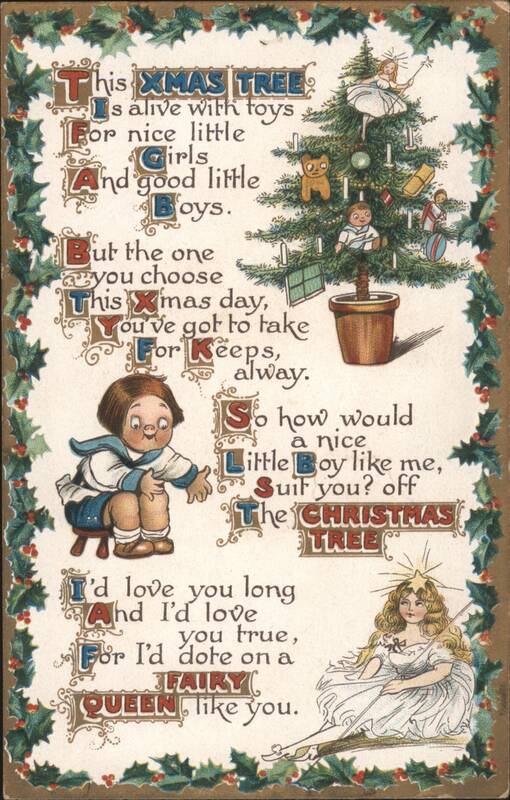 This XMAS TREE
Is alive with toys
For nice little
Girls
And good little
Boys.
But the one
you choose
This Xmas day,
You've got to take
For Keeps,
alway.
So how would
a nice
Little Boy like me,
Suit you? off
The CHRISTMAS
TREE
I'd love you long
And I'd love
you true,
For I'd dote on a
FAIRY
QUEEN like you.